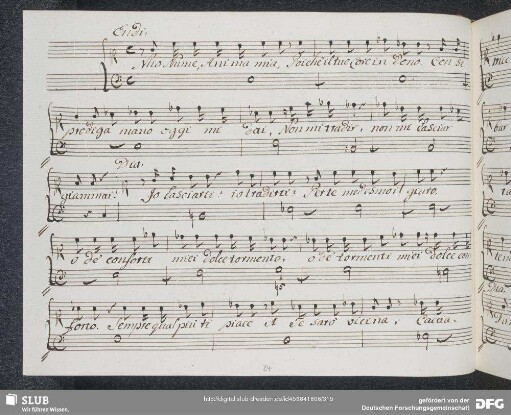 Endi:
Mio Nume, Anima mia, Poiche il tuo core in dono. Con si
prodiga mano oggi mi dai, Non mi tradir, non mi lasciar
giammai! Dia: Io lasciarti? io tradirti? Per te medesmo il giuro.
o de conforti miei dolce tormento, o de tormenti miei dolce con
forto. Sempre qual piu ti piace A Te sarò vicina, Caccia.
24
SLUB
Wir führen Wissen.
gefördert von der
Deutschen Forschungsgemeinschaft
DFG